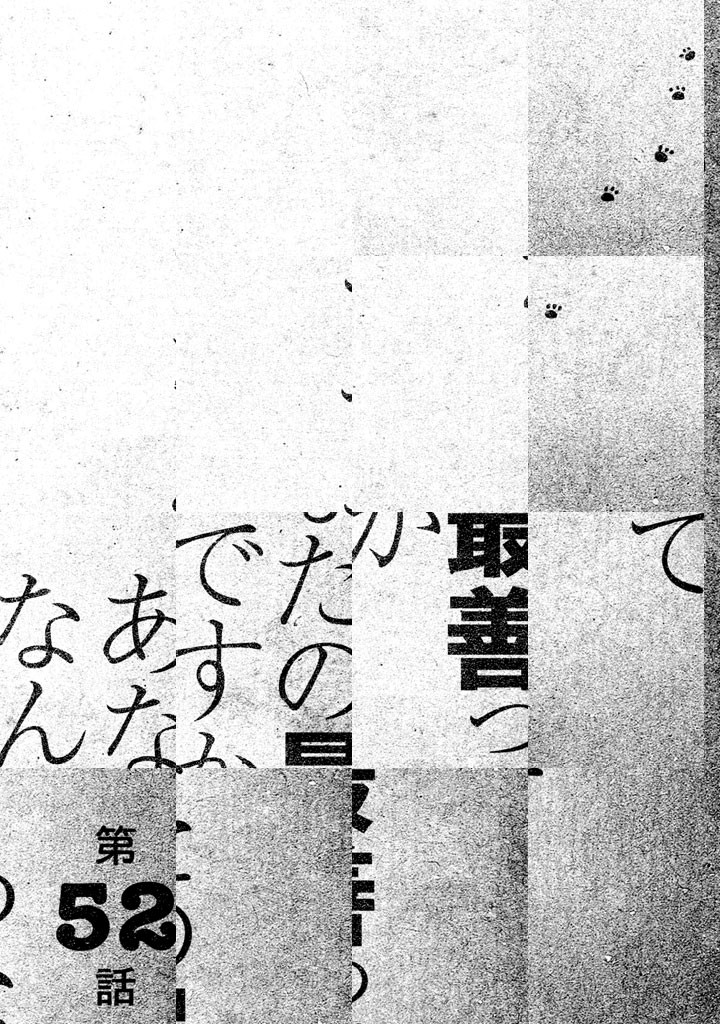 て
最善っ
か
たの
ですか
あな
なん
第52話